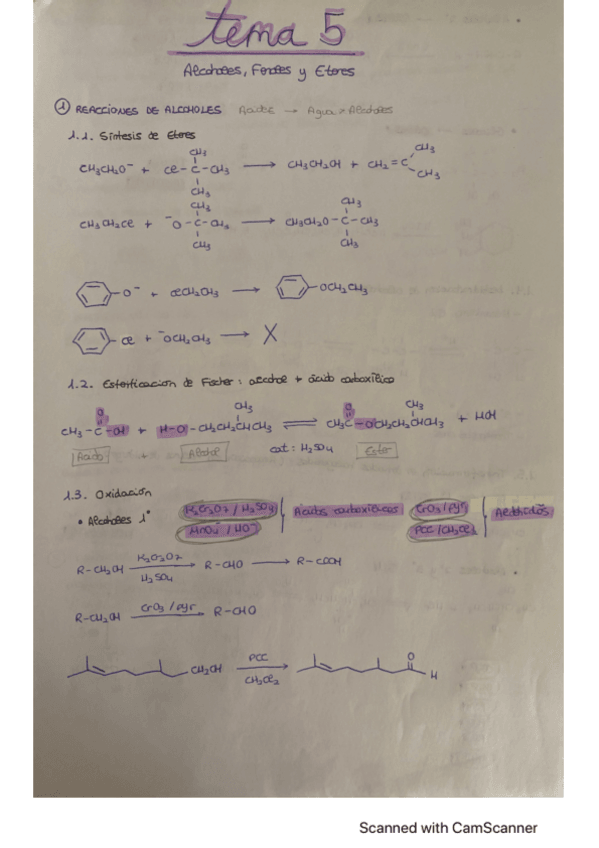 tema 5
Alcoholes, Fenoles y Eteres
① REACCIONES DE ALCOHOLES Acidez → Agua > Alcoholes
1.1. Síntesis de Eteres
CH3
CH3CH2O⁻ + Cl-C-CH3 → CH3CH2OH + CH2=C CH3
CH3 CH3
CH3 CH3
CH3CH2Cl + ⁻O-C-CH3 → CH3CH2O-C-CH3
CH3 CH3
-O⁻ + ClCH2CH3 → -OCH2CH3
-Cl + ⁻OCH2CH3 → X
1.2. Esterificación de Fischer: alcohol + ácido carboxílico
O CH3 O CH3
CH3-C-OH + H-O-CH2CH2CHCH3 ⇌ CH3C-OCH2CH2CHCH3 + HOH
Ácido + Alcohol cat: H2SO4 Ester
1.3. Oxidación
• Alcoholes 1° K2Cr2O7 / H2SO4 Ácidos carboxílicos CrO3/pyr Aldehídos
MnO4⁻ / HO⁻ PCC/CH2Cl2
R-CH2OH K2Cr2O7 H2SO4 → R-CHO → R-COOH
R-CH2OH CrO3/pyr → R-CHO
CH2OH PCC CH2Cl2 → O H
Scanned with CamScanner